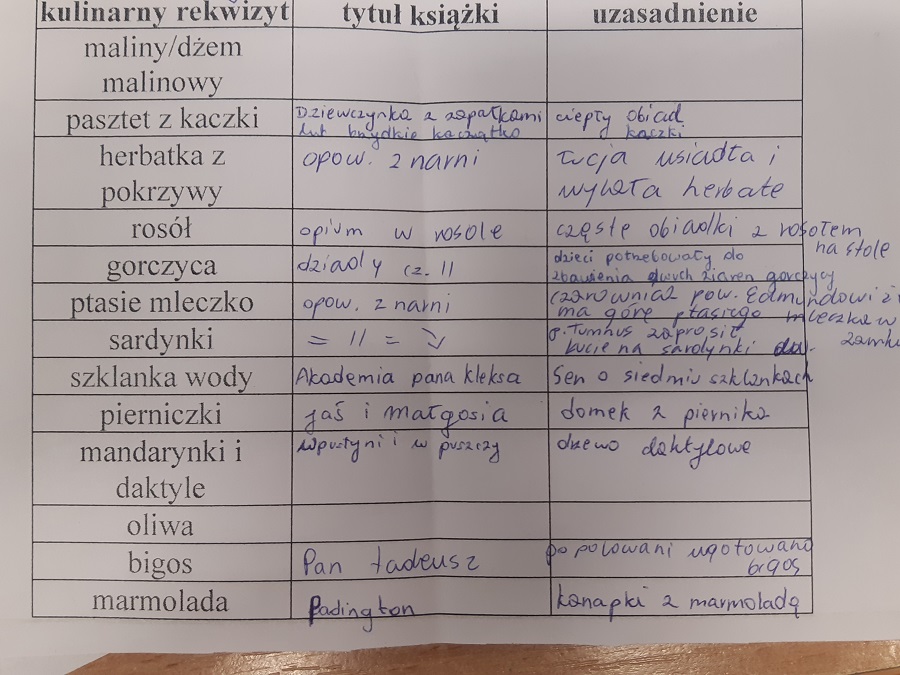 kulinarny rekwizyt tytuł książki uzasadnienie
maliny/dżem
malinowy
pasztet z kaczki Dziewczynka z zapałkami ciepły obiad
lub brydkie kaczątko kaczki
herbatka z opow. z narni Łucja usiadła i
pokrzywy wylała herbate
rosół opium w rosole częste obiadki z rosołem
na stole
gorczyca dziady cz. II dzieci potrzebowały do
zbawienia dwuch ziaren gorczycy
ptasie mleczko opow. z narni czarownica pow. Edmundowi ż
ma górę ptasiego mleczka w
zamku
sardynki = 11 = p. Tumnus zaprosił
Łucie na sardynki
szklanka wody Akademia pana kleksa Sen o siedmiu szklankach
pierniczki jaś i małgosia domek z piernika
mandarynki i w pustyni i w puszczy drzewo daktylowe
daktyle
oliwa
bigos Pan tadeusz po polowani ugotowano
bigos
marmolada Padington kanapki z marmoladą